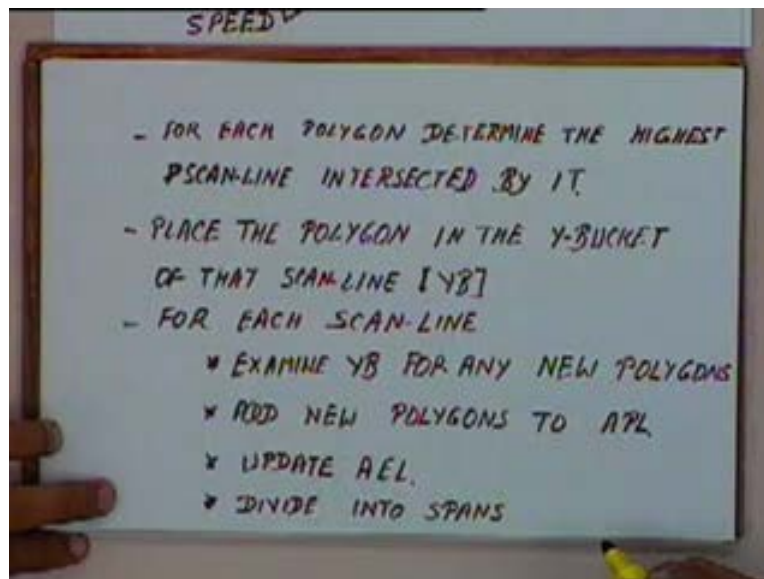 SPEED
- FOR EACH POLYGON DETERMINE THE HIGHEST
SCAN-LINE INTERSECTED BY IT.
- PLACE THE POLYGON IN THE Y-BUCKET
OF THAT SCAN-LINE [YB]
- FOR EACH SCAN-LINE
* EXAMINE YB FOR ANY NEW POLYGONS
* ADD NEW POLYGONS TO APL
* UPDATE AEL.
* DIVIDE INTO SPANS